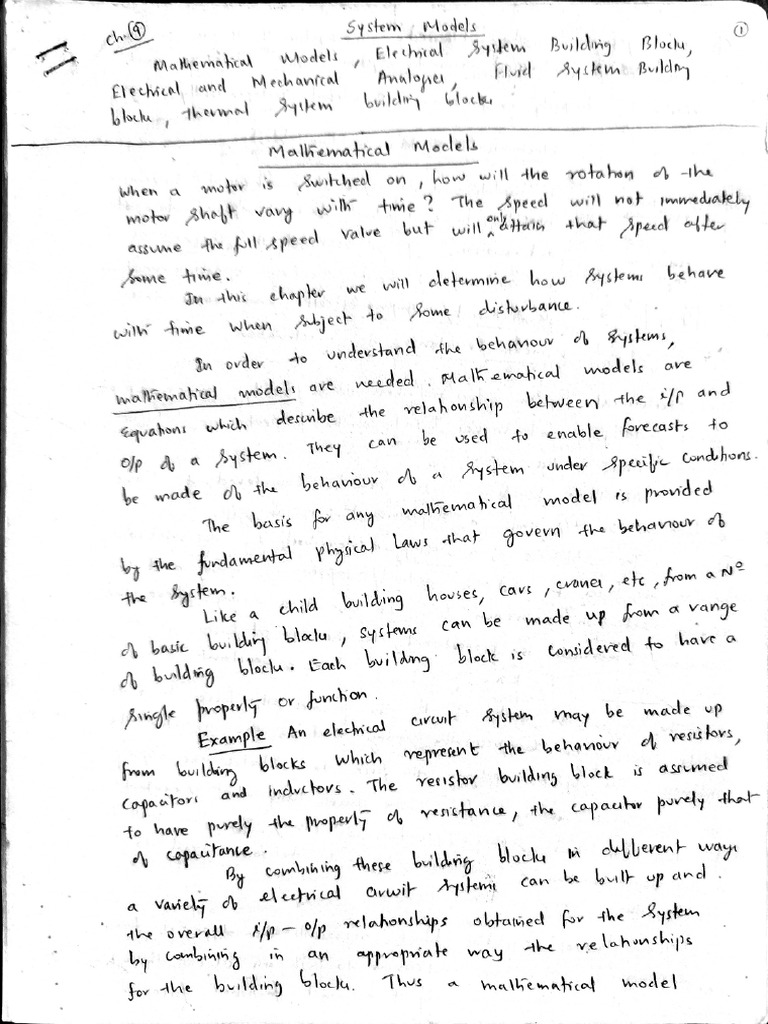 Ch: 9
System Models
1
Mathematical Models, Electrical System Building Blocks,
Electrical and Mechanical Analogies, Fluid System Building
blocks, thermal system building blocks
Mathematical Models
When a motor is switched on, how will the rotation of the
motor shaft vary with time? The speed will not immediately
assume the full speed value but will only attain that speed after
some time.
In this chapter we will determine how systems behave
with time when subject to some disturbance.
In order to understand the behaviour of systems,
mathematical models are needed. Mathematical models are
Equations which describe the relationship between the i/p and
o/p of a system. They can be used to enable forecasts to
be made of the behaviour of a system under specific conditions.
The basis for any mathematical model is provided
by the fundamental physical Laws that govern the behaviour of
the system.
Like a child building houses, cars, cranes, etc, from a Nº
of basic building blocks, systems can be made up from a range
of building blocks. Each building block is considered to have a
single property or function.
Example An electrical circuit system may be made up
from building blocks which represent the behaviour of resistors,
capacitors and inductors. The resistor building block is assumed
to have purely the property of resistance, the capacitor purely that
of capacitance.
By combining these building blocks in different ways
a variety of electrical circuit systems can be built up and
the overall i/p - o/p relationships obtained for the system
by combining in an appropriate way the relationships
for the building blocks. Thus a mathematical model